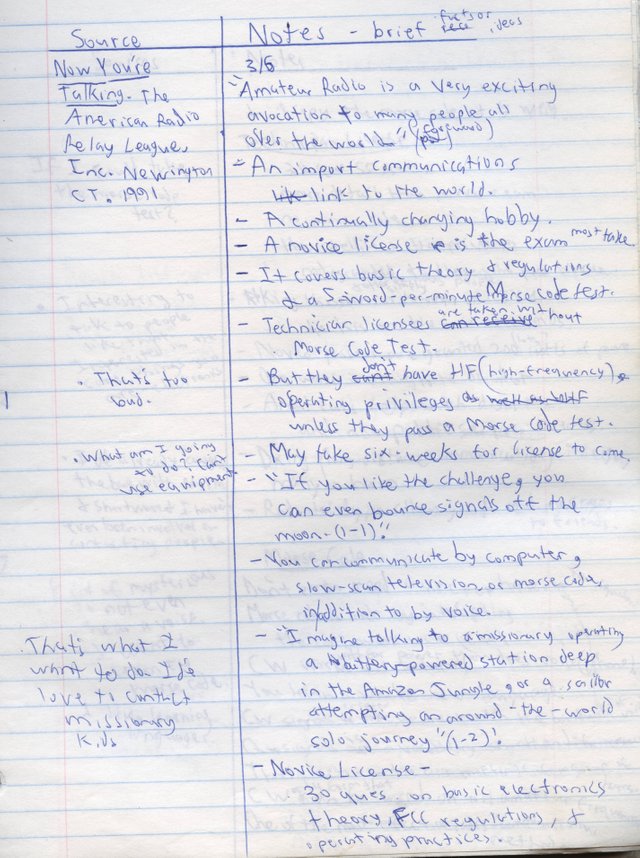 Source
Now You're
Talking. The
American Radio
Relay League,
Inc. Newington
CT. 1991
. That's too
bad.
. What am I going
to do? Can't
use equipment
. That's what I
want to do. I'd
love to contact
missionary
kids
Notes - brief facts or ideas
3/5
"Amateur Radio is a very exciting
avocation to many people all
over the world." (forward)
- An import communications
link to the world.
- A continually changing hobby.
- A novice license is the exam most take
- It covers basic theory & regulations
& a 5-word-per-minute Morse code test.
- Technician licensees are taken without
Morse Code Test.
- But they don't have HF (high-frequency)
operating privileges as well as VHF
unless they pass a Morse code test.
- May take six-weeks for license to come.
- "If you like the challenge, you
can even bounce signals off the
moon. (1-1)!"
- You can communicate by computer,
slow-scan television, or morse code,
in addition to by voice.
- "Imagine talking to a missionary operating
a battery-powered station deep
in the Amazon Jungle, or a sailor
attempting an around-the-world
solo journey" (1-2)!
- Novice License -
30 ques. on basic electronics
theory, FCC regulations, &
operating practices.